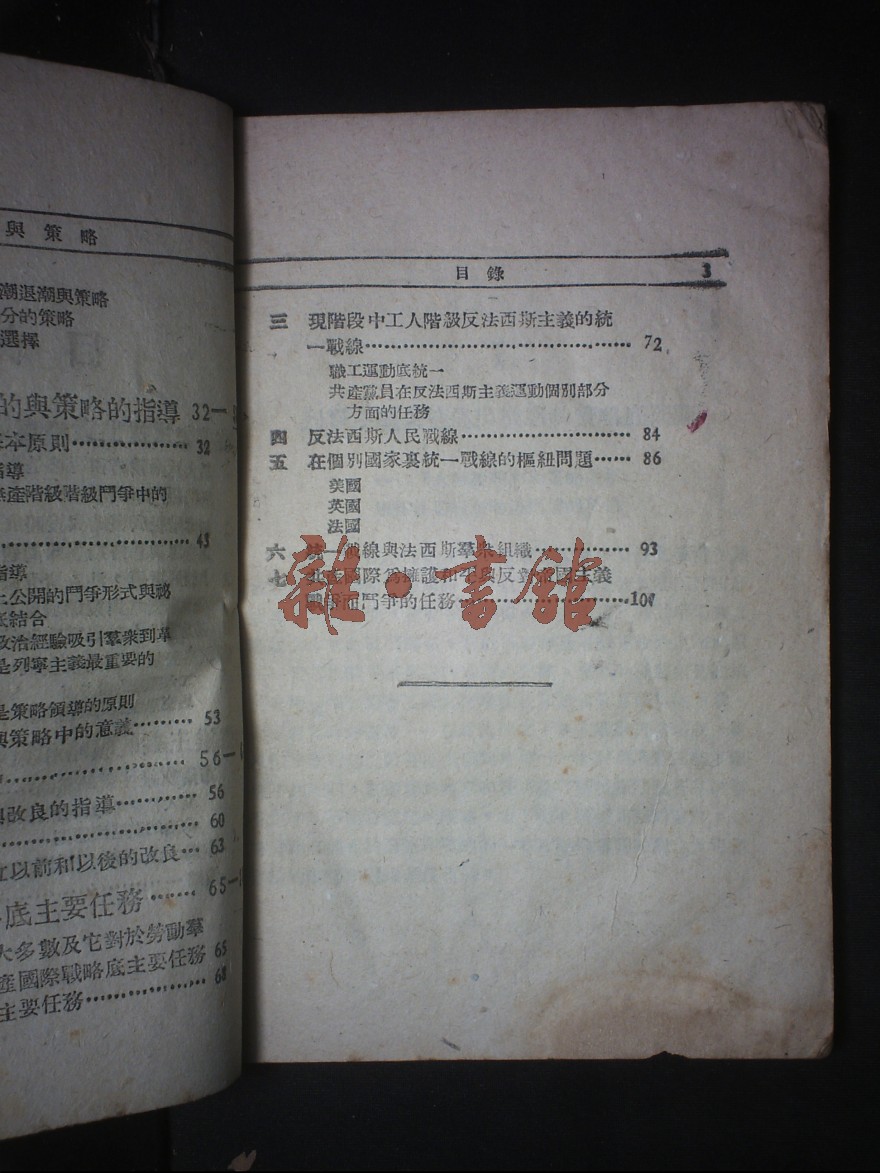 與策略
潮退潮與策略
分的策略
選擇
的與策略的指導 32—
本原則 32
指導
產階級階級鬥爭中的
43
指導
公開的鬥爭形式與祕
底結合
政治經驗吸引羣衆到革
是列寧主義最重要的
是策略領導的原則
與策略中的意義 53
56—
改良的指導 56
60
以前和以後的改良 63
底主要任務 65—
大多數及它對於勞動羣
產國際戰略底主要任務 65
主要任務 68
目錄 3
三 現階段中工人階級反法西斯主義的統
一戰線 72
職工運動底統一
共產黨員在反法西斯主義運動個別部分
方面的任務
四 反法西斯人民戰線 84
五 在個別國家裏統一戰線的樞紐問題 86
美國
英國
法國
六 統一戰線與法西斯羣衆組織 93
七 共產國際爲擁護和平與反對帝國主義
戰爭而鬥爭的任務 101
雜·書館